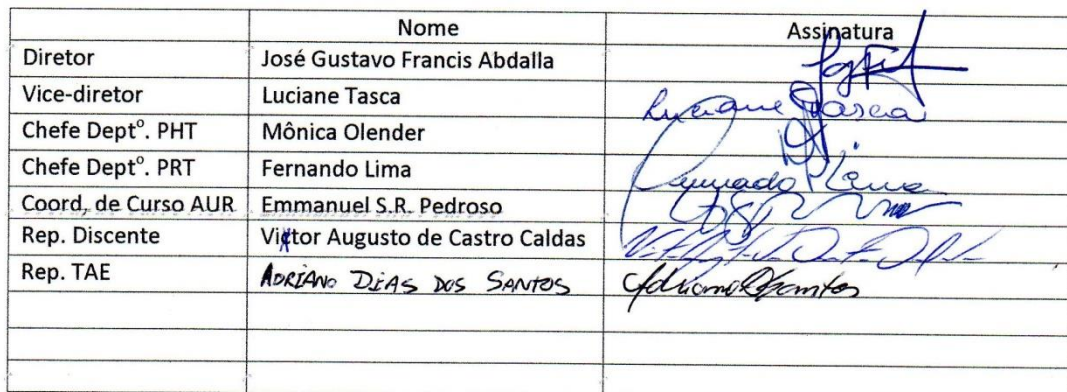 Nome Assinatura
Diretor José Gustavo Francis Abdalla
Vice-diretor Luciane Tasca Luciane Tasca
Chefe Deptº. PHT Mônica Olender
Chefe Deptº. PRT Fernando Lima Fernando Lima
Coord. de Curso AUR Emmanuel S.R. Pedroso
Rep. Discente Victor Augusto de Castro Caldas
Rep. TAE ADRIANO DIAS DOS SANTOS Adriano D Santos